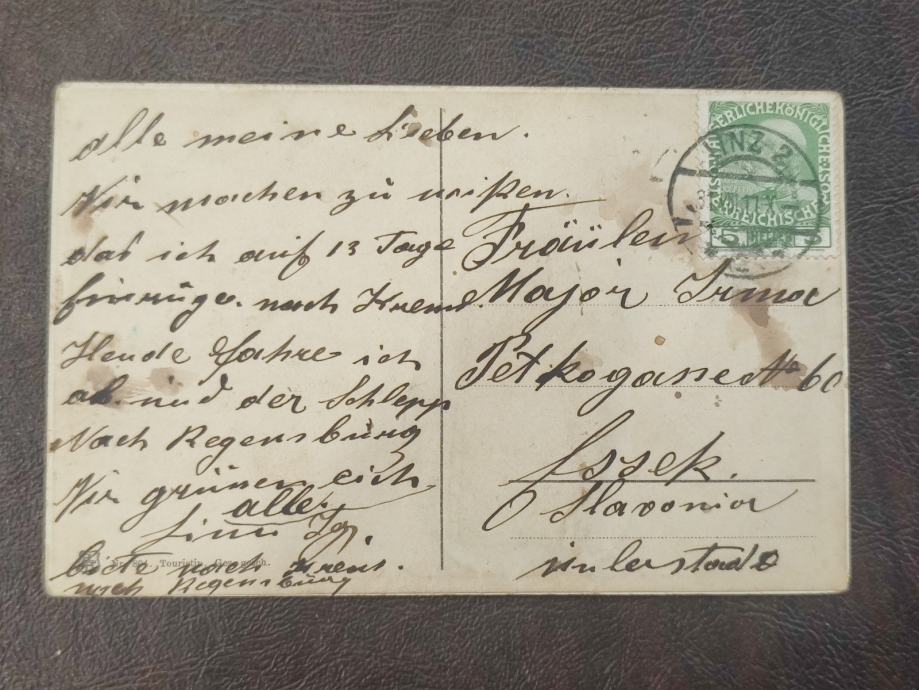 alle meine Lieben.
Wir machen zu wißen.
das ich auf 13 Tage
einrüge. nach Krems.
Heude fahre ich
ab. mid der Schlepp
Nach Regensburg
Wir grüßen eich
alle.
bide nach Krems.
nach Regensburg
KAISERLICHE KÖNIGLICHE ÖSTERREICHISCHE POST
5 HELLER 5
LINZ 2
Fräulein
Major Irma
Petkogasse No 60
Essek.
Slavonia
unterstadt